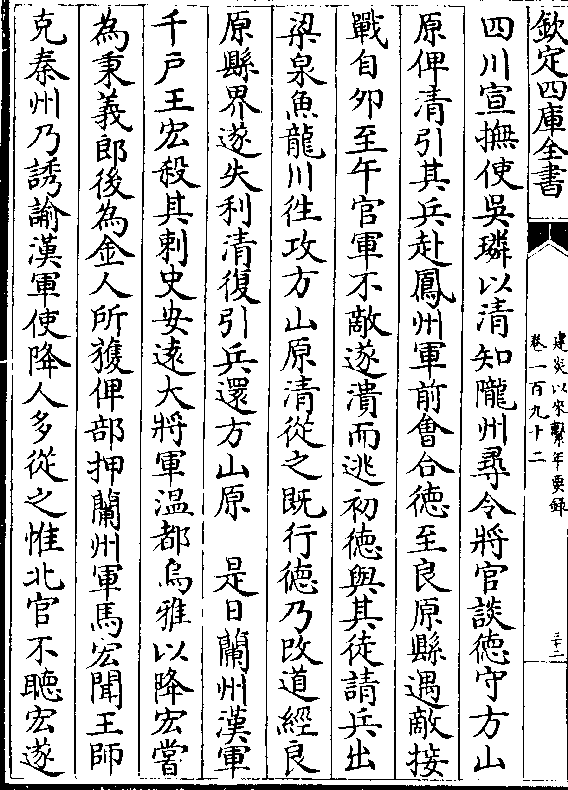 欽定四庫全書
建炎以來繫年要録
卷一百九十二
三十二
四川宣撫使吳璘以清知隴州尋令將官談德守方山
原俾清引其兵赴鳳州軍前會合德至良原縣遇敵接
戰自夘至午官軍不敵遂潰而逃初德與其徒請兵出
梁泉魚龍川徃攻方山原清從之既行德乃改道經良
原縣界遂失利清復引兵還方山原　是日蘭州漢軍
千户王宏殺其刺史安逺大將軍温都烏雅以降宏嘗
為秉義郎後為金人所獲俾部押蘭州軍馬宏聞王師
克秦州乃誘諭漢軍使降人多從之惟北官不聽宏遂